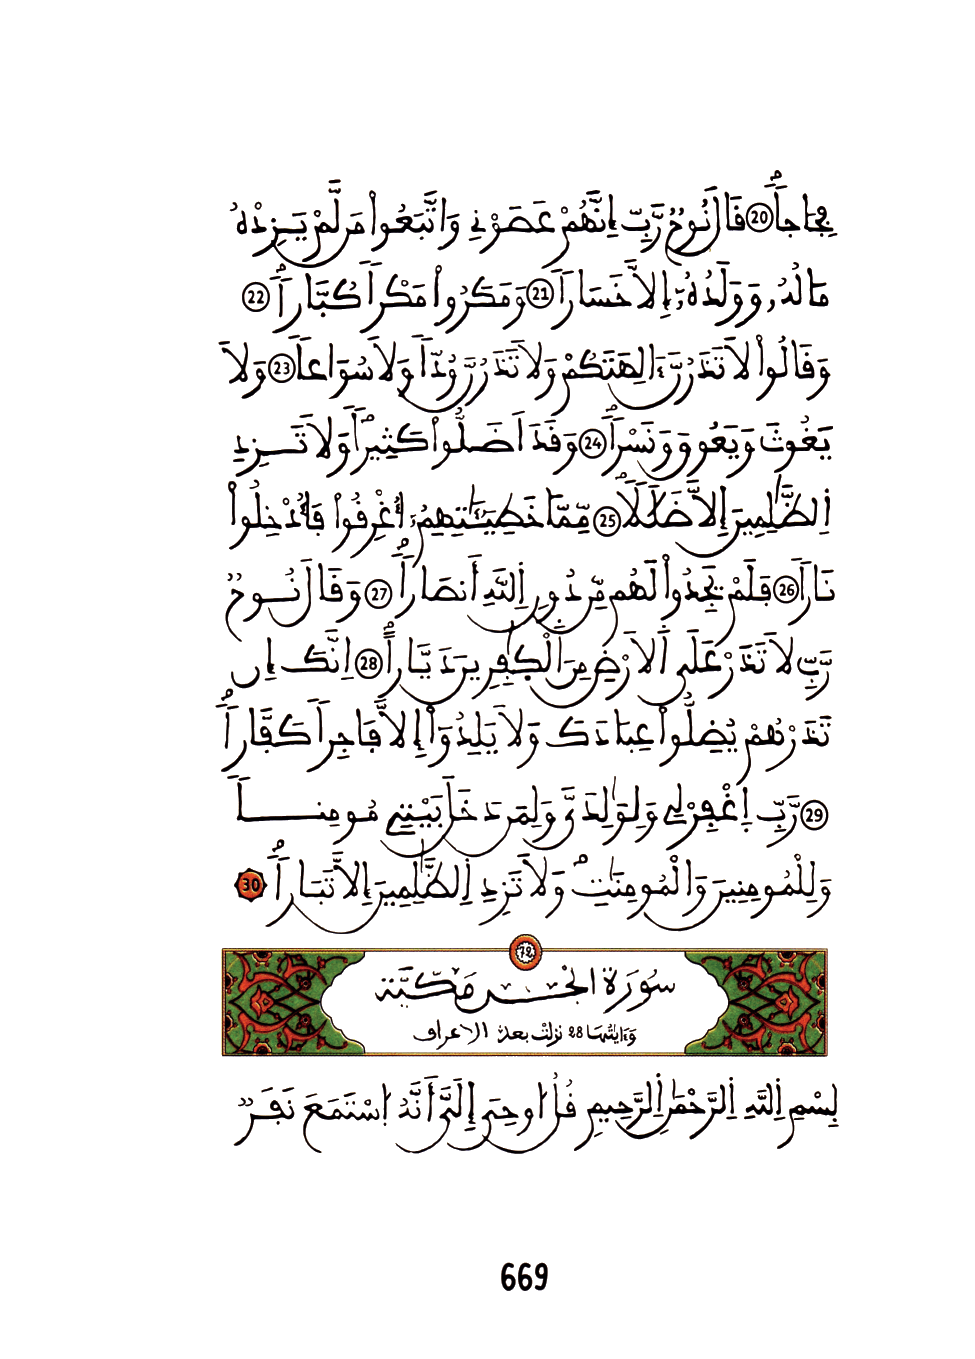 فِجَاجاٗۖ 20 قَالَ نُوحٞ رَّبِّ إِنَّهُمْ عَصَوْنِے وَاتَّبَعُواْ مَن لَّمْ يَزِدْهُ
مَالُهُۥ وَوَلَدُهُۥٓ إِلَّا خَسَاراٗ 21 وَمَكَرُواْ مَكْراٗ كُبَّاراٗۖ 22
وَقَالُواْ لَا تَذَرُنَّ ءَالِهَتَكُمْ وَلَا تَذَرُنَّ وُدّاٗ وَلَا سُوَاعاٗ 23 وَلَا
يَغُوثَ وَيَعُوقَ وَنَسْراٗۖ 24 وَقَدَ اَضَلُّواْ كَثِيراٗۖ وَلَا تَزِدِ
اِلظَّٰلِمِينَ إِلَّا ضَلَٰلاٗۖ 25 مِّمَّا خَطِيٓـَٰٔتِهِمُۥٓ أُغْرِقُواْ فَأُدْخِلُواْ
نَاراٗ 26 فَلَمْ يَجِدُواْ لَهُم مِّن دُونِ اِللَّهِ أَنصَاراٗۖ 27 وَقَالَ نُوحٞ
رَّبِّ لَا تَذَرْ عَلَى اَلَارْضِ مِنَ اَلْكٰ۪فِرِينَ دَيَّاراًۖ 28 اِنَّكَ إِن
تَذَرْهُمْ يُضِلُّواْ عِبَادَكَ وَلَا يَلِدُوٓاْ إِلَّا فَاجِراٗ كَفَّاراٗۖ
29 رَّبِّ اِغْفِرْ لِے وَلِوَٰلِدَيَّ وَلِمَن دَخَلَ بَيْتِے مُومِناٗ
وَلِلْمُومِنِينَ وَالْمُومِنَٰتِۖ وَلَا تَزِدِ اِلظَّٰلِمِينَ إِلَّا تَبَاراٗۖ 30
72
سُورَةُ الْجِنِّ مَكِّيَّة
وَءَايَٰتُهَا 28 نزلت بعد الاعراف
بِسْمِ اِللَّهِ اِلرَّحْمَٰنِ اِلرَّحِيمِ قُلُ اوحِيَ إِلَيَّ أَنَّهُ اُسْتَمَعَ نَفَرٞ
669